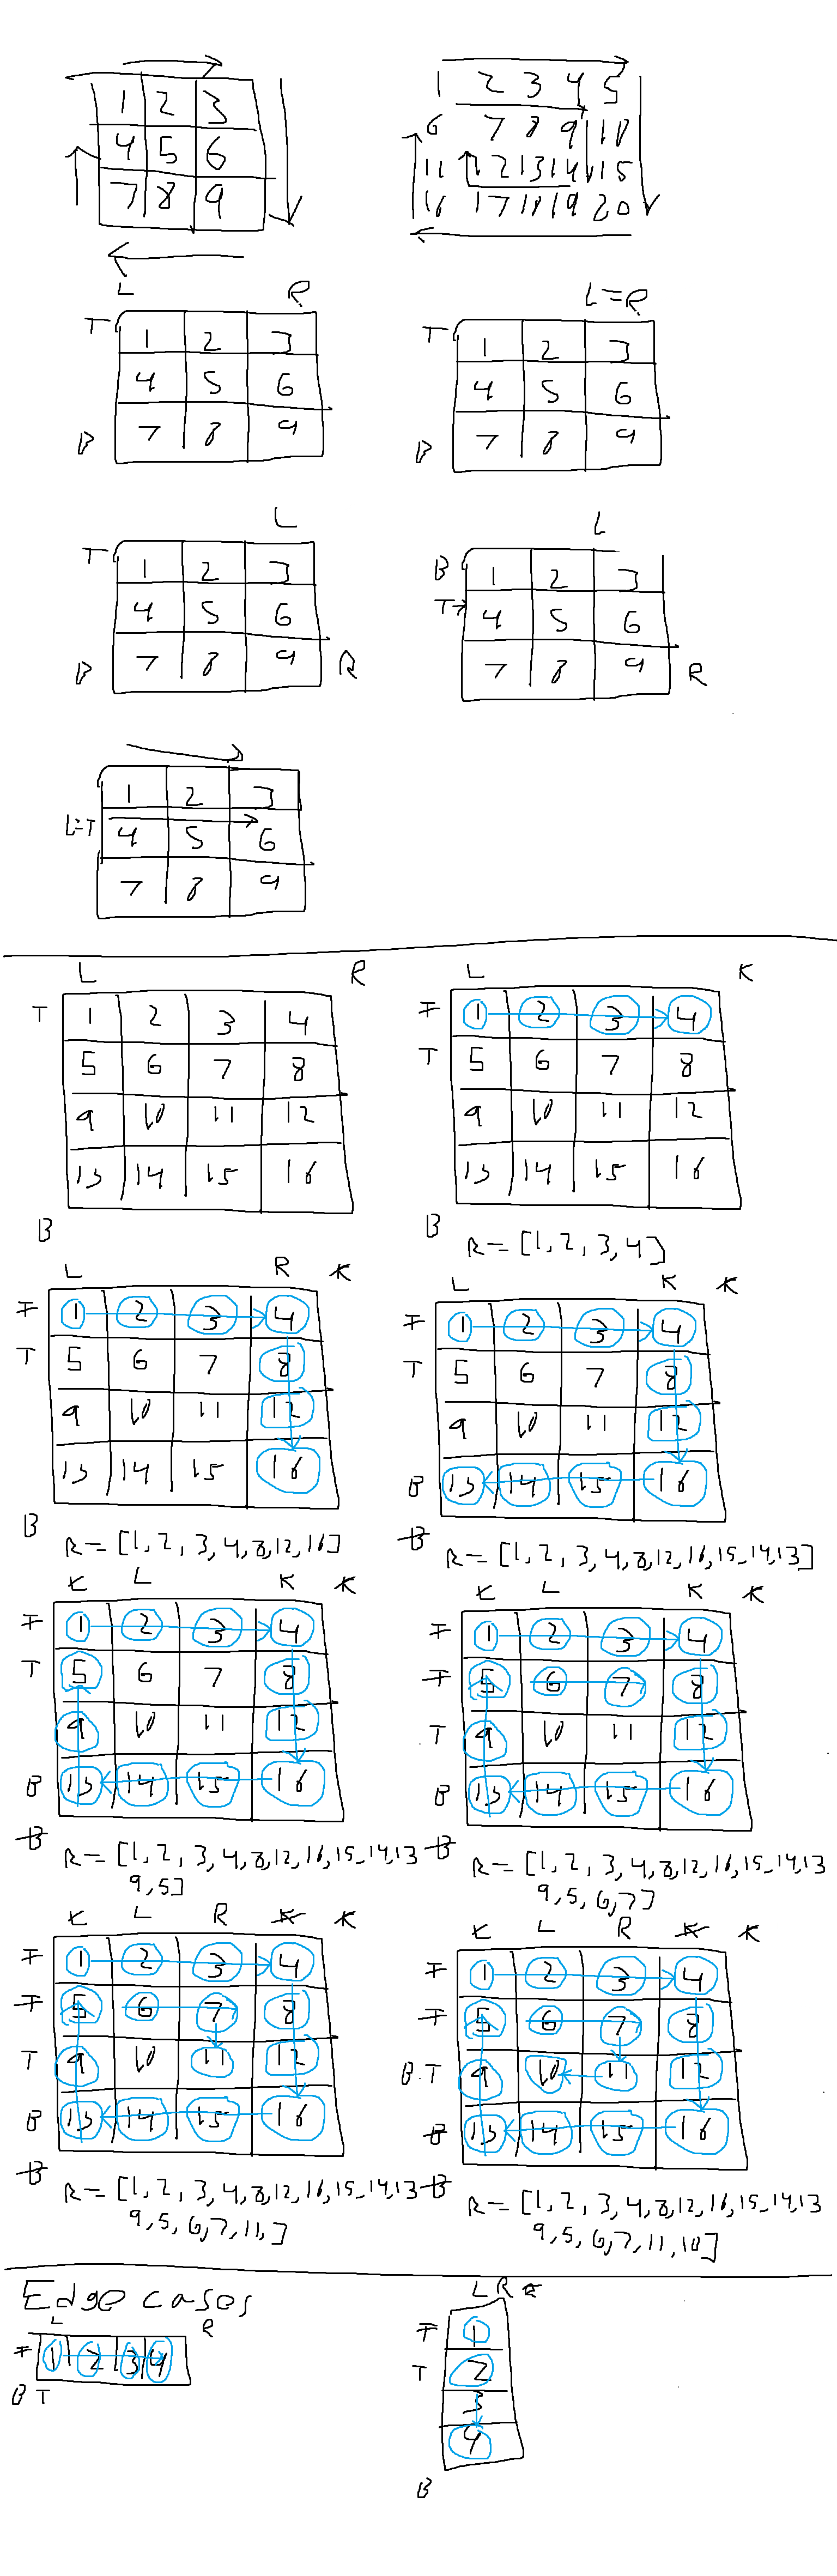 1 2 3
4 5 6
7 8 9
1 2 3 4 5
6 7 8 9 10
11 12 13 14 15
16 17 18 19 20
L R
T 1 2 3
4 5 6
B 7 8 9
L=R
T 1 2 3
4 5 6
B 7 8 9
L
T 1 2 3
4 5 6
B 7 8 9 R
L
B 1 2 3
T 4 5 6
7 8 9 R
1 2 3
L=T 4 5 6
7 8 9
L R
T 1 2 3 4
5 6 7 8
9 10 11 12
13 14 15 16
B
L R
T 1 2 3 4
T 5 6 7 8
9 10 11 12
13 14 15 16
B
R = [1, 2, 3, 4]
L R R
T 1 2 3 4
T 5 6 7 8
9 10 11 12
13 14 15 16
B
R = [1, 2, 3, 4, 8, 12, 16]
L R R
T 1 2 3 4
T 5 6 7 8
9 10 11 12
B 13 14 15 16
B
R = [1, 2, 3, 4, 8, 12, 16, 15, 14, 13]
L L R R
T 1 2 3 4
T 5 6 7 8
9 10 11 12
B 13 14 15 16
B
R = [1, 2, 3, 4, 8, 12, 16, 15, 14, 13
9, 5]
L L R R
T 1 2 3 4
T 5 6 7 8
T 9 10 11 12
B 13 14 15 16
B
R = [1, 2, 3, 4, 8, 12, 16, 15, 14, 13
9, 5, 6, 7]
L L R R R
T 1 2 3 4
T 5 6 7 8
T 9 10 11 12
B 13 14 15 16
B
R = [1, 2, 3, 4, 8, 12, 16, 15, 14, 13
9, 5, 6, 7, 11, ]
L L R R R
T 1 2 3 4
T 5 6 7 8
B T 9 10 11 12
B 13 14 15 16
B
R = [1, 2, 3, 4, 8, 12, 16, 15, 14, 13
9, 5, 6, 7, 11, 10]
Edge cases
L R
T 1 2 3 4
B T
L R R
T 1
T 2
3
4
B